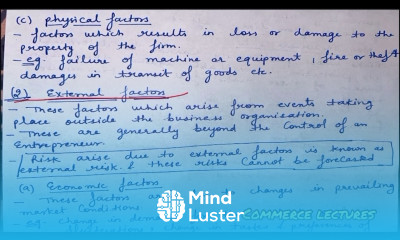 (c) Physical factors
- factors which results in loss or damage to the
property of the firm.
- eg. failure of machine or equipment, fire or theft
damages in transit of goods etc.
(2) External factors
- These factors which arise from events taking
place outside the business organization.
- These are generally beyond the control of an
Entrepreneur.
- Risk arise due to external factors is known as
external risk. & these risks cannot be forecasted
(a) Economic factors
- These factors to changes in prevailing
market conditions
- eg. change in demand
change in tastes & preferences of
Mind
Luster
COMMERCE LECTURES